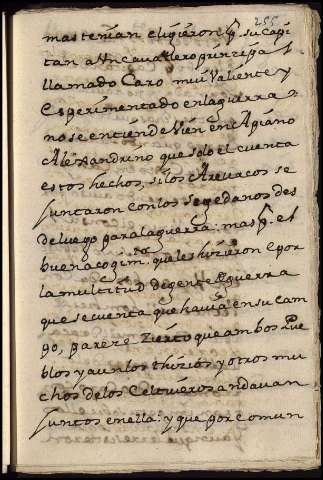 255
mas tenian eligieron pr. su capi
tan a Vn cauallero prinzipal
llamado Caro mui Valiente y
esperimentado en la guerra
no se entiende Vien en Apiano
Alexandrino que solo el cuenta
estos hechos, si los Areuacos se
juntaron con los Segedanos des
de luego para la guerra: mas pr. el
buen acozimto. que les hizieron e por
la multitud de gente de guerra
que se cuenta que hauia en su cam
po, pareze zierto que ambos Pue
blos y aun los thizios y otros mu
chos de los Celtiueros andauan
juntos en ella: y que por comun